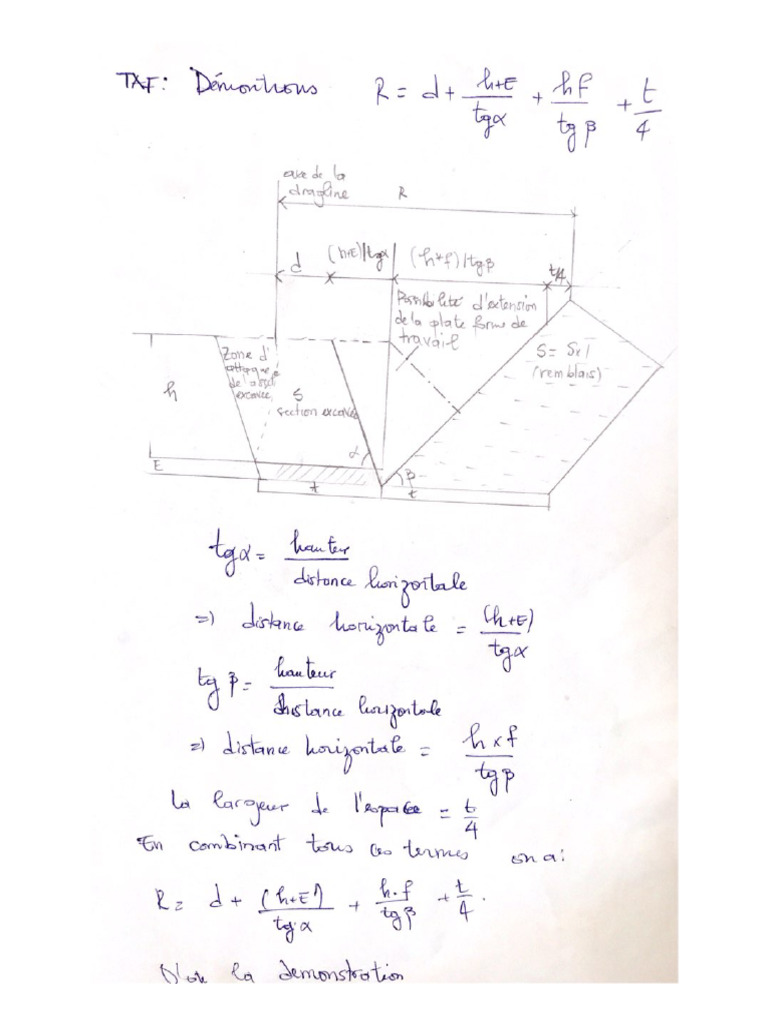 TXF: Démontrons R = d + (h+E)/tgα + hf/tgβ + t/4
axe de la
dragline
R
d (h+E)/tgα (h*f)/tgβ t/4
Possibilité d'extension
de la plate forme de
travail
Zone d'
de
excavée,
S
section excavée
S = S×1
(remblais)
h
α
E
β
t
t
tgα = hauteur/distance horizontale
=> distance horizontale = (h+E)/tgα
tgβ = hauteur/distance horizontale
=> distance horizontale = h×f/tgβ
La largeur de l'espace = t/4
En combinant tous ces termes on a:
R = d + (h+E)/tg.α + h.f/tgβ + t/4.
D'où la demonstration